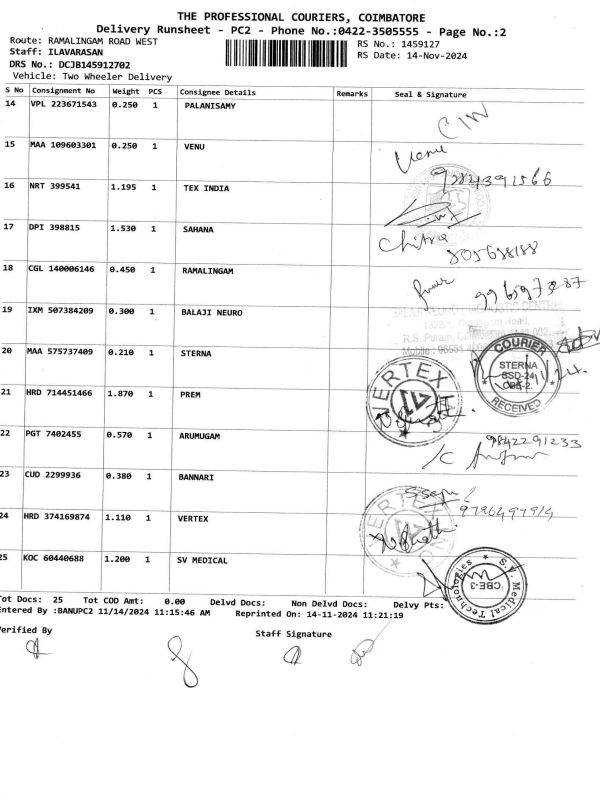 THE PROFESSIONAL COURIERS, COIMBATORE
Delivery Runsheet - PC2 - Phone No.:0422-3505555 - Page No.:2
Route: RAMALINGAM ROAD WEST
RS No.: 1459127
Staff: ILAVARASAN
RS Date: 14-Nov-2024
DRS No.: DCJB145912702
Vehicle: Two Wheeler Delivery
S No Consignment No Weight PCS Consignee Details Remarks Seal & Signature
14 VPL 223671543 0.250 1 PALANISAMY
15 MAA 109603301 0.250 1 VENU Venu
16 NRT 399541 1.195 1 TEX INDIA
17 DPI 398815 1.530 1 SAHANA Chitra
18 CGL 140006146 0.450 1 RAMALINGAM
19 IXM 507384209 0.300 1 BALAJI NEURO
R.S. Puram,
Mobile : 96551
20 MAA 575737409 0.210 1 STERNA
COURIER
STERNA
RECEIVED
21 HRD 714451466 1.870 1 PREM
VERTEX
22 PGT 7402455 0.570 1 ARUMUGAM 9842291233
23 CUD 2299936 0.380 1 BANNARI
24 HRD 374169874 1.110 1 VERTEX
VERTEX
25 KOC 60440688 1.200 1 SV MEDICAL
S.V. Medical Technologies
CBE-3
Tot Docs: 25 Tot COD Amt: 0.00 Delvd Docs: Non Delvd Docs: Delvy Pts:
Entered By :BANUPC2 11/14/2024 11:15:46 AM Reprinted On: 14-11-2024 11:21:19
Verified By
Staff Signature